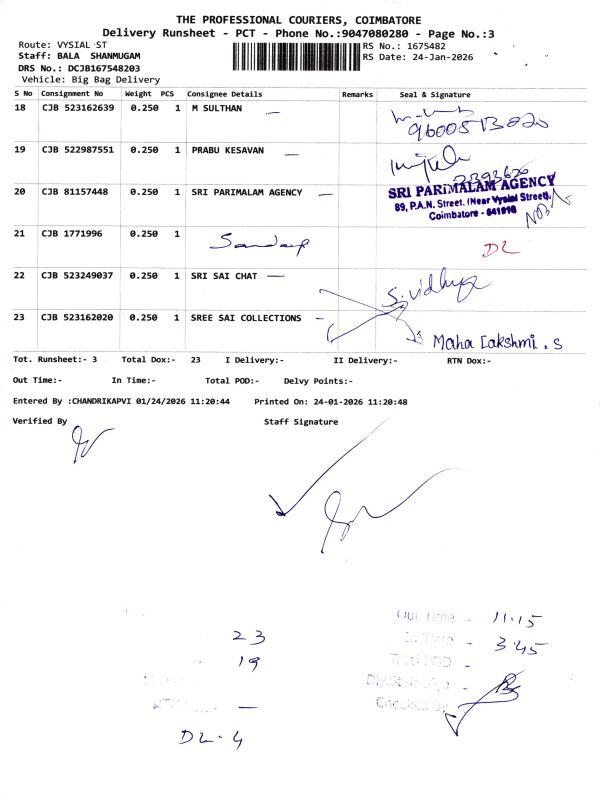 THE PROFESSIONAL COURIERS, COIMBATORE
Delivery Runsheet - PCT - Phone No.:9047080280 - Page No.:3
Route: VYSIAL ST
Staff: BALA SHANMUGAM
DRS No.: DCJB167548203
Vehicle: Big Bag Delivery
RS No.: 1675482
RS Date: 24-Jan-2026
S No Consignment No Weight PCS Consignee Details Remarks Seal & Signature
18 CJB 523162639 0.250 1 M SULTHAN
19 CJB 522987551 0.250 1 PRABU KESAVAN
20 CJB 81157448 0.250 1 SRI PARIMALAM AGENCY
SRI PARIMALAM AGENCY
89, P.A.N. Street, (Near Vysial Street),
Coimbatore - 641018
21 CJB 1771996 0.250 1 Sandeep DL
22 CJB 523249037 0.250 1 SRI SAI CHAT S. vidhya
23 CJB 523162020 0.250 1 SREE SAI COLLECTIONS Maha Lakshmi . S
Tot. Runsheet:- 3 Total Dox:- 23 I Delivery:- II Delivery:- RTN Dox:-
Out Time:- In Time:- Total POD:- Delvy Points:-
Entered By :CHANDRIKAPVI 01/24/2026 11:20:44 Printed On: 24-01-2026 11:20:48
Verified By Staff Signature
Out Time - 11.15
23 In Time - 3.45
19 Total POD -
Checked By
DL - 4